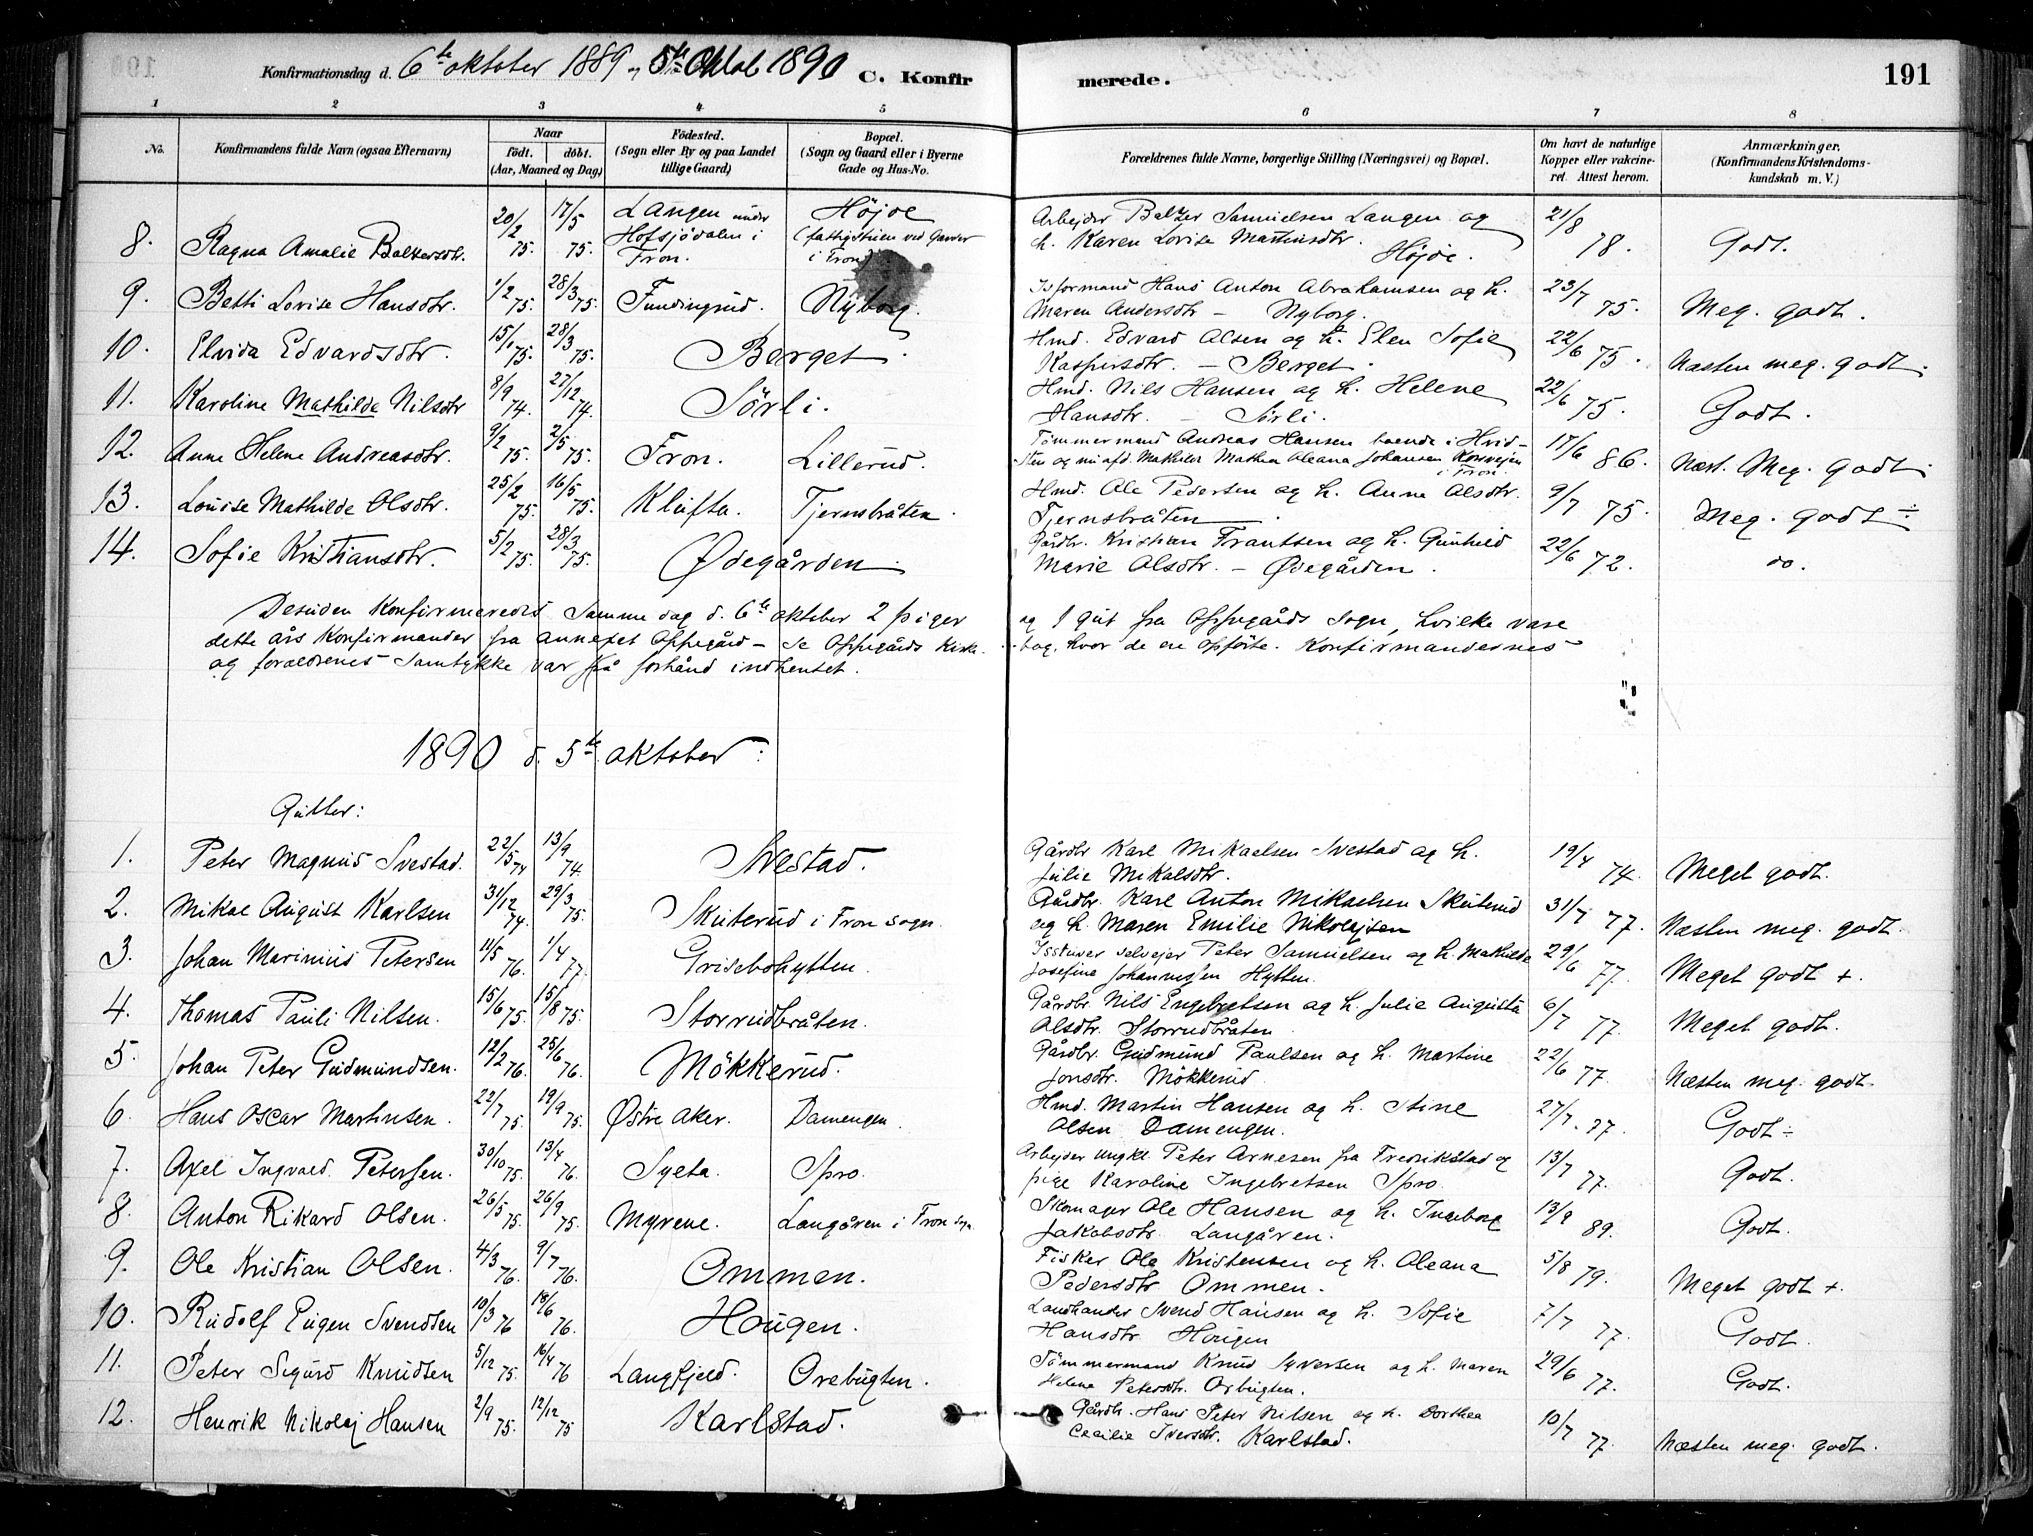 Konfirmationsdag d. 6te oktober 1889 og 5te Oktob 1890 C. Konfirmerede. 191
1 2 3 4 5 6 7 8
No. Konfirmandens fulde Navn (ogsaa Efternavn) Naar födt. döbt. (Aar, Maaned og Dag) Födested. (Sogn eller By og paa Landet tillige Gaard) Bopæl. (Sogn og Gaard eller i Byerne Gade og Hus-No. Forældrenes fulde Navne, borgerlige Stilling (Næringsvei) og Bopæl. Om havt de naturlige Kopper eller vakcineret. Attest herom. Anmærkninger. (Konfirmandens Kristendomskundskab m. V.)
8. Ragna Amalie Baltzersdtr. 20/2 75. 17/5 75. Langen under Hofsjödalen i Fron. Höjoe (fattigstuen ved Garder i Fron) Arbejder Baltzer Samuelsen Langen og h. Karen Lovise Martinsdtr. Höjoe. 21/8 78. Godt.
9. Betti Lovise Hansdtr. 1/2 75. 28/3 75. Fundingrud. Nyborg. Isformand Hans Anton Abrahamsen og h. Maren Andersdtr – Nyborg. 23/7 75. Meg. godt.
10. Elvida Edvardsdtr. 15/1 75. 28/3 75. Berget. Hmd. Edvard Olsen og h. Elen Sofie Kaspersdtr. – Berget. 22/6 75. Næsten meg. godt.
11. Karoline Mathilde Nilsdtr 8/9 74. 27/12 74. Sörli. Hmd. Nils Hansen og h. Helene Hansdtr. – Sörli. 22/6 75. Godt.
12. Anne Helene Andreasdtr. 9/2 75. 2/5 75. Fron. Lillerud. Tömmermand Andreas Hansen boende i Hvidsten og nu afd. Mathilde Mathea Oleana Johansen Korvejen i Fron. 17/6 86. Næst. Meg. godt.
13. Louise Mathilde Olsdtr. 25/2 75. 16/5 75. Klufta. Tjernsbråten. Hmd. Ole Pedersen og h. Anne Olsdtr. Tjernsbråten. 9/7 75. Meg. godt ÷
14. Sofie Kristiansdtr. 5/2 75. 28/3 75. Ødegården. Gårdbr. Kristian Frantsen og h. Gunhild Marie Olsdtr. – Ødegården. 22/6 72. do.
Desuden Konfirmeredes samme dag d. 6te oktober 2 piger og 1 gut fra Oppegårds sogn, hvilke vare
dette års Konfirmander fra annexet Oppegård – se Oppegårds Kirkebog, hvor de ere opförte. Konfirmandernes
og forældrenes samtykke var på forhånd indhentet.
1890 d. 5te oktober:
Gutter:
1. Peter Magnus Svestad. 22/5 74 13/9 74. Svestad. Gårdbr Karl Mikaelsen Svestad og h. Julie Mikalsdtr. 19/4 74. Meget godt.
2. Mikal August Karlsen 31/12 74. 29/3 75. Skuterud i Fron sogn. Gårdbr. Karl Anton Mikaelsen Skuterud og h. Maren Emilie Nikolejsen 31/7 77. Næsten meg. godt.
3. Johan Marinius Petersen 11/5 76. 1/4 77. Grisebohytten. Isstuver selvejer Peter Samuelsen og h. Mathilde Josefine Johannessen Hytten. 29/6 77. Meget godt +.
4. Thomas Pauli Nilsen. 15/6 75. 15/8 75. Storrudbråten. Gårdbr Nils Engebretsen og h. Julie Augusta Olsdtr. Storrudbråten 6/7 77. Meget godt.
5. Johan Peter Gudmundsen. 12/2 76. 25/6 76. Mökkerud. Gårdbr. Gudmund Paulsen og h. Martine Jonsdtr. Mökkerud. 22/6 77. Næsten meg. godt.
6. Hans Oscar Martinsen. 22/7 75. 19/9 75. Østre Aker. Damengen. Hmd. Martin Hansen og h. Stine Olsen Damengen. 27/7 77. Godt ÷
7. Axel Ingvald Petersen. 30/10 75. 13/4 76. Sylta. Spro. Arbejder ungkl. Peter Arnesen fra Fredrikstad og pige Karoline Ingebretsen Spro. 13/7 77. Godt.
8. Anton Rikard Olsen. 26/5 75. 26/9 75. Myrene. Langåren i Fron sgn. Skomager Ole Hansen og h. Ingeborg Jakobsdtr. Langåren. 13/9 89. Godt.
9. Ole Kristian Olsen. 4/3 76. 9/7 76. Ommen. Fisker Ole Kristensen og h. Oleana Pedersdtr Ommen. 5/8 79. Meget godt +.
10. Rudolf Eugen Svendsen 10/3 76 18/6 76. Hougen. Landhandler Svend Hansen og h. Sofie Hansdtr Hougen 7/7 77. Godt.
11. Peter Sigurd Knudsen 5/12 75. 16/4 76 Langfjeld. Orebugten. Tömmermand Knud Syversen og h. Maren Helene Petersdtr. Orbugten. 29/6 77. Godt.
12. Henrik Nikolej Hansen 2/9 75. 12/12 75 Karlstad. Gårdbr. Hans Peter Nilsen og h. Dorthea Cecilie Iversdtr. Karlstad. 10/7 77. Næsten meg. godt.